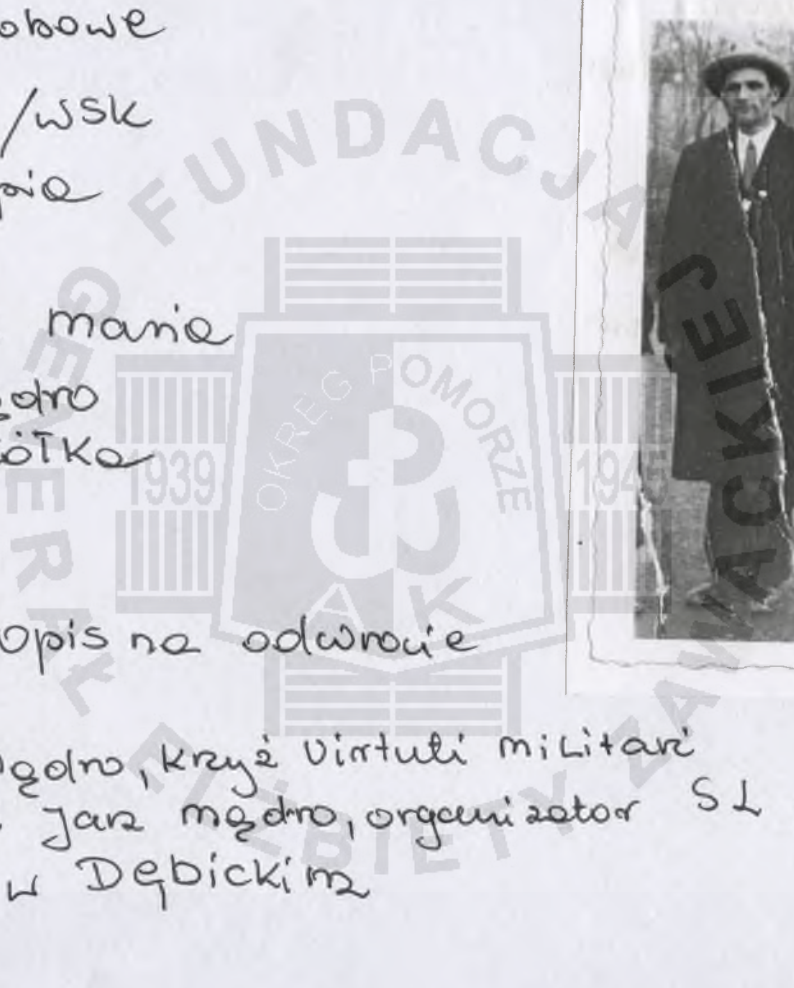 obowe
/WSK
pia
Maria
ądro
ółka
Opis na odwrocie
ądro, Krzyż Virtuti Militari
Jan Mądro, organizator SL
w Dębickim
FUNDACJA
GENERAŁ ELŻBIETY ZAWACKIEJ
OKRĘG POMORZE
1939
1945
AK